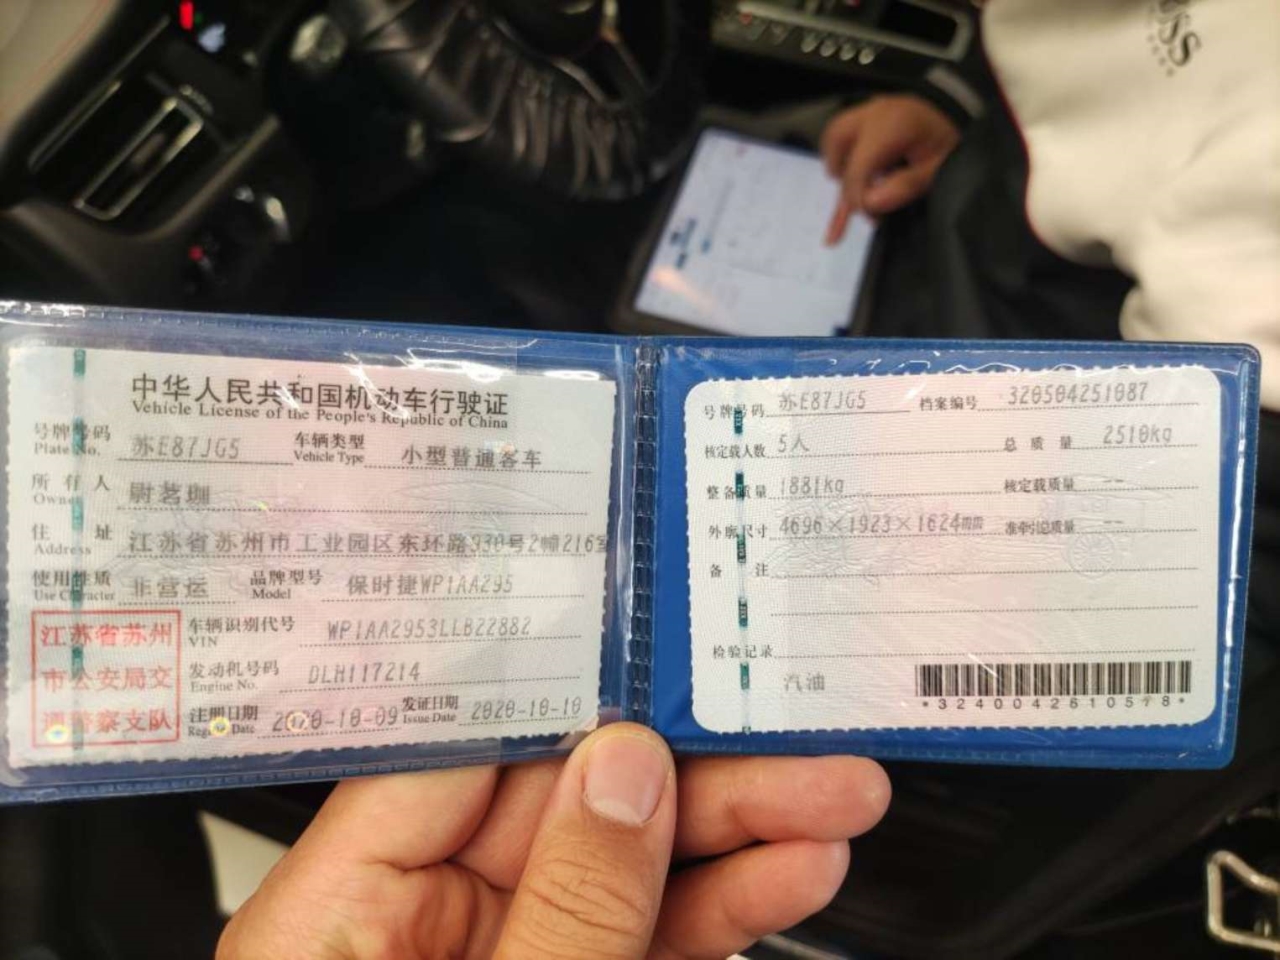 中华人民共和国机动车行驶证
Vehicle License of the People's Republic of China
号牌号码 苏E87JG5 车辆类型 小型普通客车
Plate No. Vehicle Type
所有人 尉茗珈
Owner
住址 江苏省苏州市工业园区东环路930号2幢216室
Address
使用性质 非营运 品牌型号 保时捷WP1AA295
Use Character Model
江苏省苏州
市公安局交
通警察支队
车辆识别代号 WP1AA2953LLB22882
VIN
发动机号码 DLH117214
Engine No.
注册日期 2020-10-09 发证日期 2020-10-10
Register Date Issue Date
号牌号码 苏E87JG5 档案编号 320504251087
核定载人数 5人 总质量 2510kg
整备质量 1881kg 核定载质量 --
外廓尺寸 4696×1923×1624mm 准牵引总质量 --
备注
检验记录
汽油
*3240042610578*